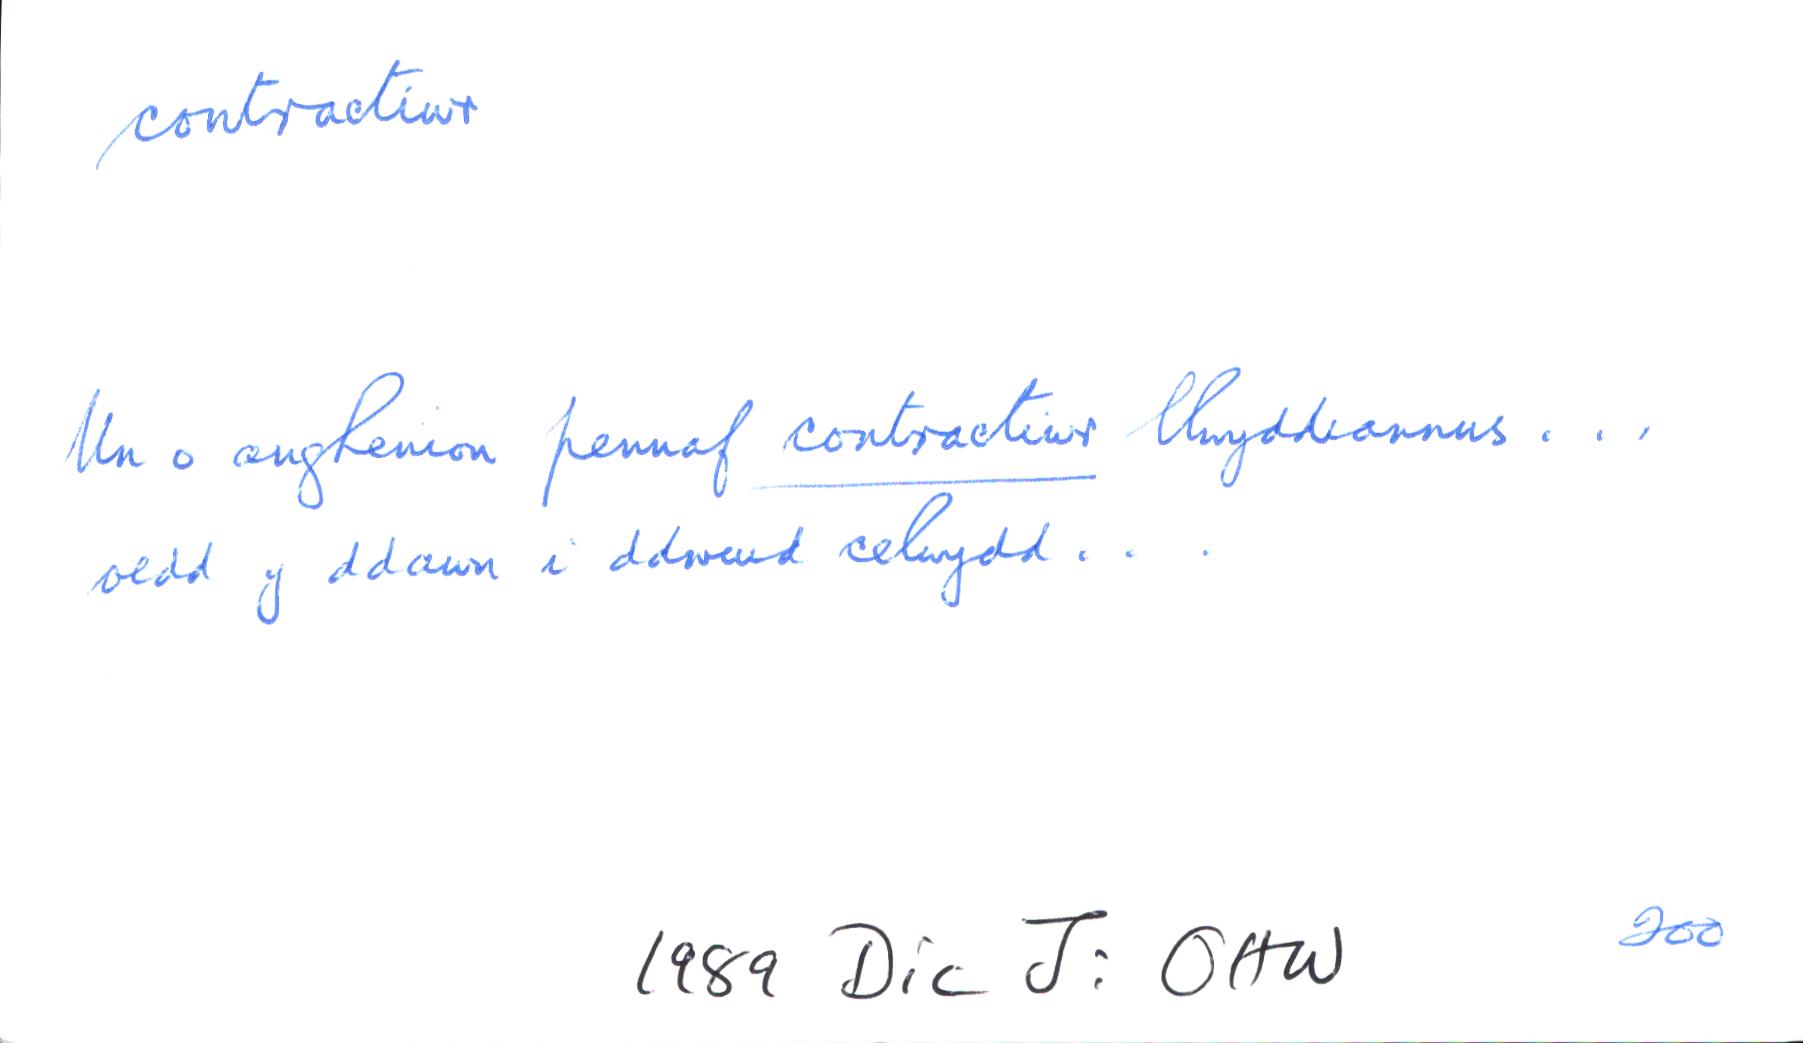 contractiwr
Un o anghenion pennaf contractiwr llwyddiannus . . .
oedd y ddawn i ddweud celwydd . . .
1989 Dic J: OHW
200